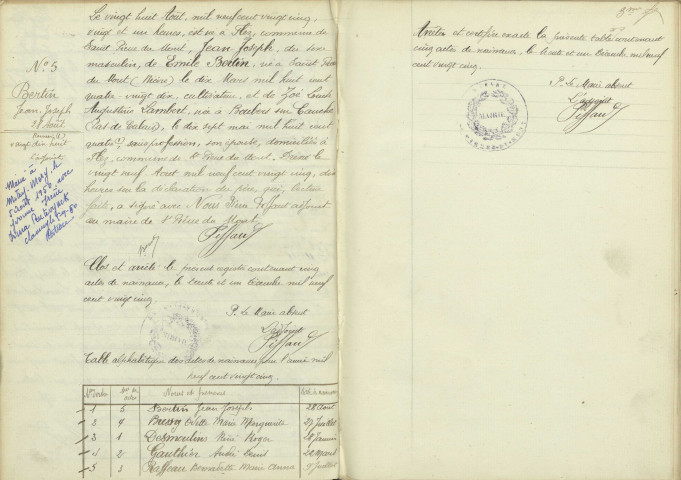 N° 5
Bertin
Jean Joseph
28 Août
Le vingt huit Août, mil neuf cent vingt cinq,
vingt et un heures, est né à Flez, commune de
Saint Pierre du Mont, Jean Joseph, du sexe
masculin, de Emile Bertin, né à Saint
du Mont (Nièvre) le dix Mars mil huit cent
quatre-vingt dix, cultivateur, et de Zoé Louise
Augustine Lambert, née à Boubers sur Canche
(Pas de Calais), le dix sept mai mil huit cent
sans profession, son épouse, domiciliés à
Flez, commune de St Pierre du Mont. Dressé le
vingt neuf Août mil neuf cent vingt cinq, dix
heures sur la déclaration du père, qui, lecture
faite, a signé avec Nous adjoint
au maire de St Pierre du Mont.
Marié à
5 août 1950 avec
Yvonne
Clos et arrêté le présent registre contenant cinq
actes de naissances, le trente et un Décembre mil neuf
cent vingt cinq.
P. Le Maire absent
L'adjoint
MAIRIE
Table alphabétique des actes de naissances pour l'année mil
neuf cent vingt cinq.
N° d'ordre Nos des actes Noms et prénoms Date de naissance
1 5 Bertin Jean Joseph 28 Août
2 4 Odette Marie Marguerite 27 Juillet
3 1 Desmoulins René Roger 28 Janvier
4 2 Gauthier André 22 Mars
5 3 Raffeau Bernadette Marie Anna 9 Juillet
Arrêté et certifié exacte la présente table contenant
cinq actes de naissances, le trente et un Décembre mil neuf
cent vingt cinq.
P. Le Maire absent
L'adjoint
MAIRIE